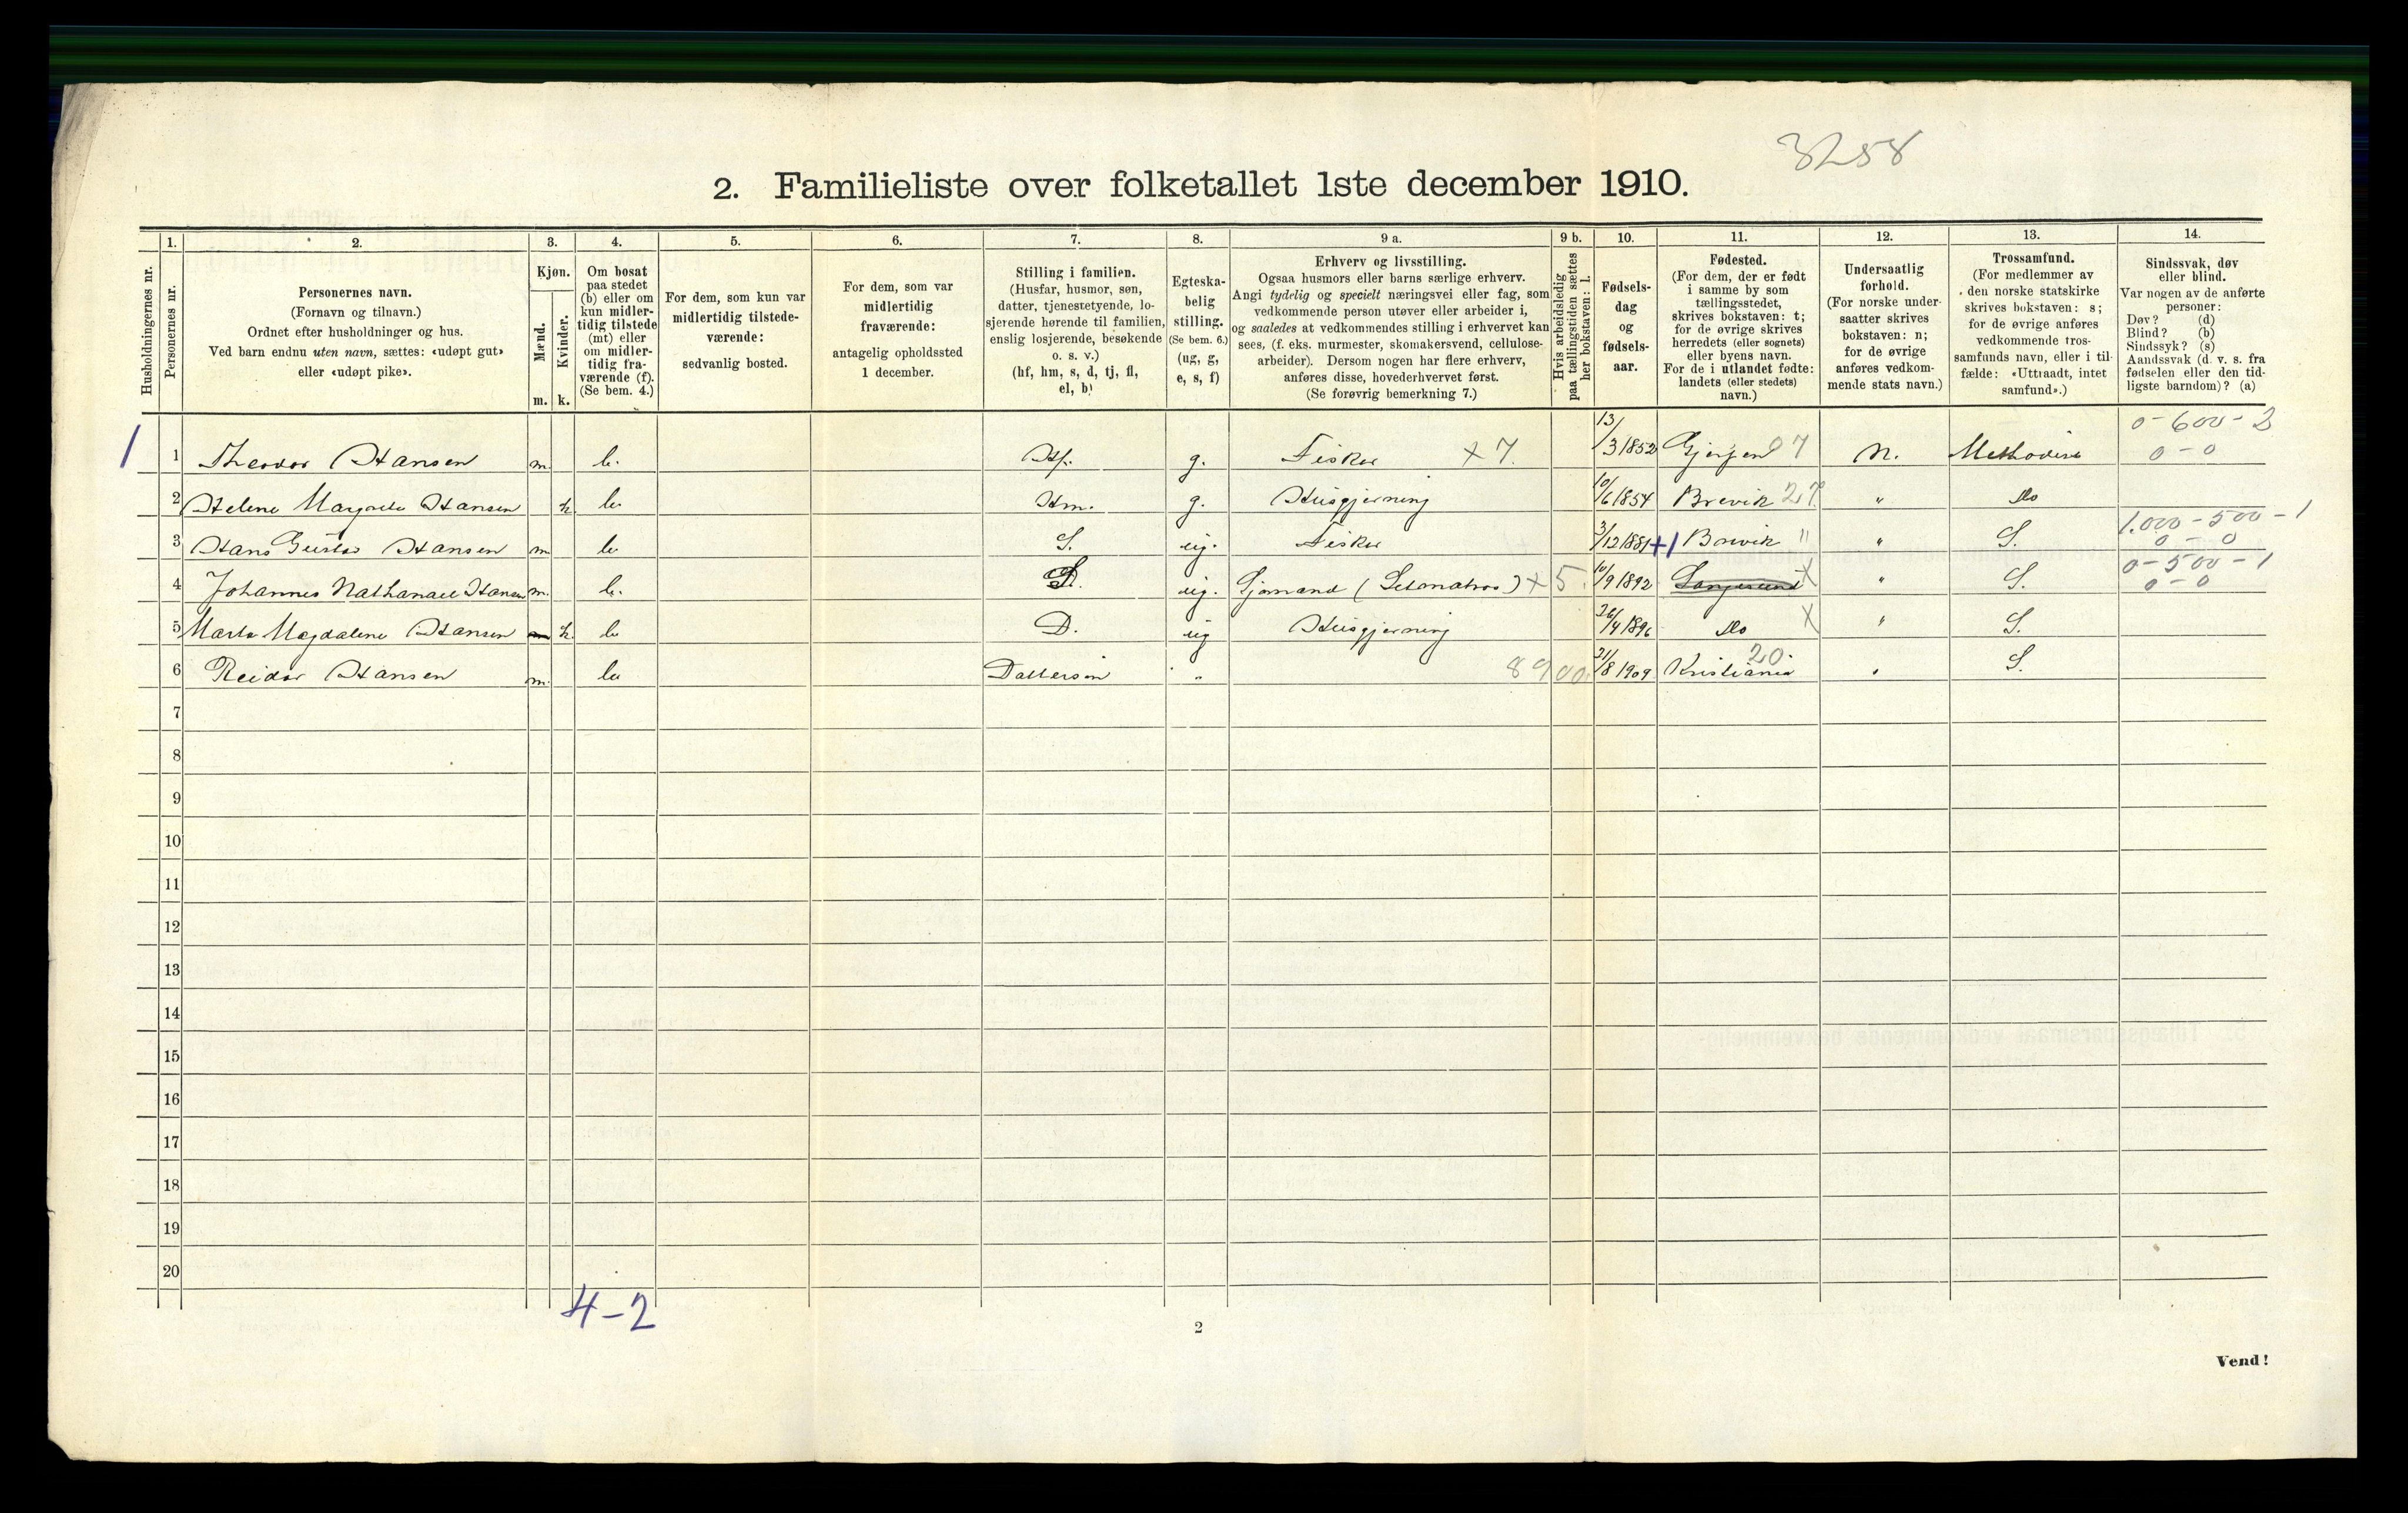 3258
2. Familieliste over folketallet 1ste december 1910.
Husholdningernes nr.
1.
Personernes nr.
2.
Personernes navn.
(Fornavn og tilnavn.)
Ordnet efter husholdninger og hus.
Ved barn endnu uten navn, sættes: «udøpt gut»
eller «udøpt pike».
3.
Kjøn.
Mænd.
Kvinder.
m. k.
4.
Om bosat
paa stedet
(b) eller om
kun midler-
tidig tilstede
(mt) eller
om midler-
tidig fra-
værende (f).
(Se bem. 4.)
5.
For dem, som kun var
midlertidig tilstede-
værende:
sedvanlig bosted.
6.
For dem, som var
midlertidig
fraværende:
antagelig opholdssted
1 december.
7.
Stilling i familien.
(Husfar, husmor, søn,
datter, tjenestetyende, lo-
sjerende hørende til familien,
enslig losjerende, besøkende
o. s. v.)
(hf, hm, s, d, tj, fl,
el, b)
8.
Egteska-
belig
stilling.
(Se bem. 6.)
(ug, g,
e, s, f)
9 a.
Erhverv og livsstilling.
Ogsaa husmors eller barns særlige erhverv.
Angi tydelig og specielt næringsvei eller fag, som
vedkommende person utøver eller arbeider i,
og saaledes at vedkommendes stilling i erhvervet kan
sees, (f. eks. murmester, skomakersvend, cellulose-
arbeider). Dersom nogen har flere erhverv,
anføres disse, hovederhvervet først.
(Se forøvrig bemerkning 7.)
9 b.
Hvis arbeidsledig
paa tællingstiden sættes
her bokstaven: l.
10.
Fødsels-
dag
og
fødsels-
aar.
11.
Fødested.
(For dem, der er født
i samme by som
tællingsstedet,
skrives bokstaven: t;
for de øvrige skrives
herredets (eller sognets)
eller byens navn.
For de i utlandet fødte:
landets (eller stedets)
navn.)
12.
Undersaatlig
forhold.
(For norske under-
saatter skrives
bokstaven: n;
for de øvrige
anføres vedkom-
mende stats navn.)
13.
Trossamfund.
(For medlemmer av
den norske statskirke
skrives bokstaven: s;
for de øvrige anføres
vedkommende tros-
samfunds navn, eller i til-
fælde: «Uttraadt, intet
samfund».)
14.
Sindssvak, døv
eller blind.
Var nogen av de anførte
personer:
Døv? (d)
Blind? (b)
Sindssyk? (s)
Aandssvak (d. v. s. fra
fødselen eller den tid-
ligste barndom)? (a)
1 1 Theodor Hansen m. b. Hf. g. Fisker × 7. 13/3 1852 N. 0-600-2 0-0
2 Helene Margrete Hansen k. b. Hm. g. Husgjerning 10/6 1854 Brevik 27 " do
3 Hans Gustav Hansen m b S. ug. Fisker 3/12 1881 +1 Brevik " " S. 1.000-500-1 0-0
4 Johannes Nathanael Hansen m. b. S. ug. Sjømand (Letmatros) × 5. 10/9 1892 Langesund × " S. 0-500-1 0-0
5 Marta Magdalene Hansen k. b D. ug Husgjerning 26/4 1896 do × " S.
6 Reidar Hansen m. b Dattersøn " 8900. 21/8 1909 Kristiania 20. " S.
7
8
9
10
11
12
13
14
15
16
17
18
19
20
4-2
2
Vend!